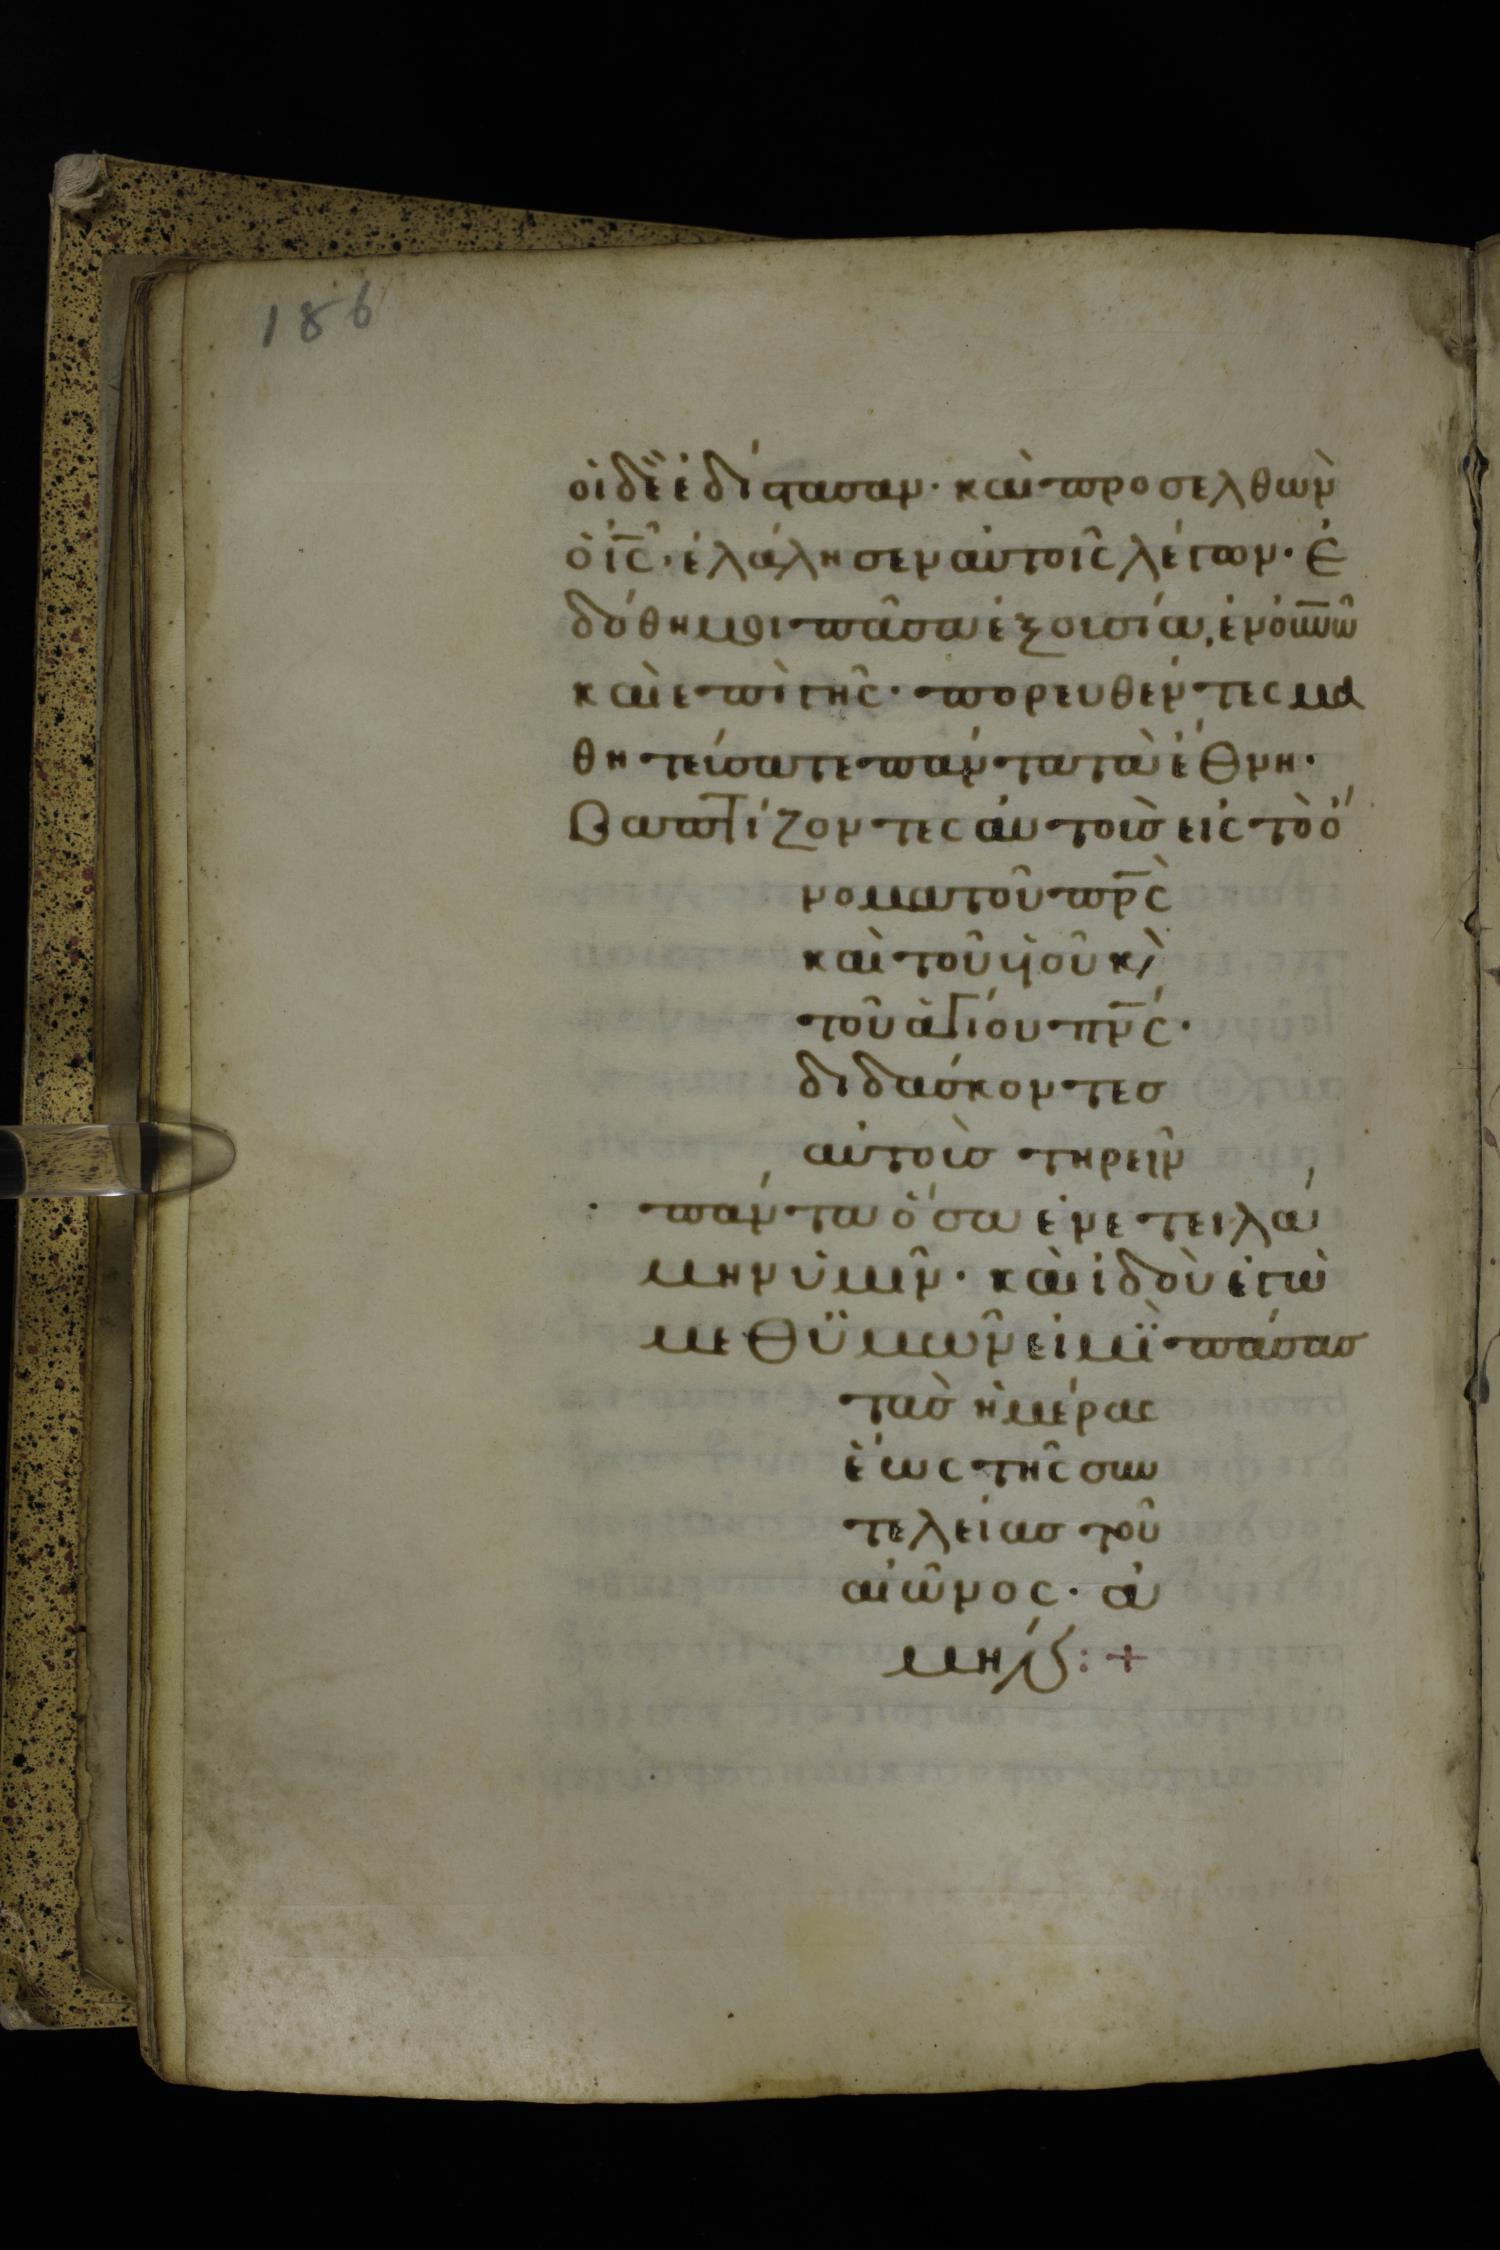 186
οἱ δὲ ἐδίστασαν· καὶ προσελθὼν
ὁ ἰ̅ς̅· ἐλάλησεν αὐτοῖς λέγων· Ἐ
δόθη μοι πᾶσα ἐξουσία, ἐν οὐ̅ν̅ῶ
καὶ ἐπὶ γῆς· πορευθέντες μα
θητεύσατε πάντα τὰ ἔθνη·
Βαπτίζοντες αὐτοὺσ εἰς τὸ ὄ
νομα τοῦ π̅ρ̅ς̅
καὶ τοῦ υἱοῦ κ̀
τοῦ ἁγίου π̅ν̅ς̅·
διδάσκοντεσ
αὐτοὺσ τηρεῖν
· πάντα ὅσα ἐνετειλά
μην ὑμῖν· καὶ ἰδοὺ ἐγὼ
μεθ ϋμῶν εἰμϊ πάσασ
τὰσ ἡμέρας
ἕως τῆς συν
τελείασ τοῦ
αἰῶνος· ἀ
μήν: +